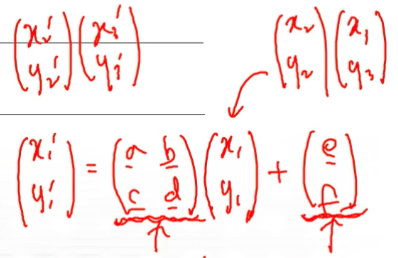 (x₂' y₂') (x₃' y₃') (x₂ y₂) (x₃ y₃)
(x₁' y₁') = (a b c d) (x₁ y₁) + (e f)